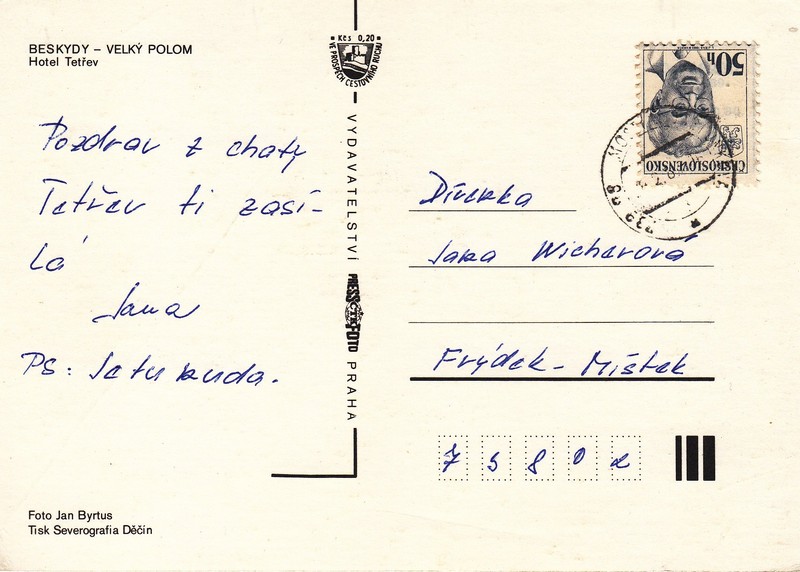 BESKYDY – VELKÝ POLOM
Hotel Tetřev
Pozdrav z chaty
Tetřev ti zasí-
lá
Jana
PS: Je tu nuda.
Foto Jan Byrtus
Tisk Severografia Děčín
Kčs 0,20
VE PROSPĚCH CESTOVNÍHO RUCHU
VYDAVATELSTVÍ PRESSFOTO PRAHA
ČTK
50h
ČESKOSLOVENSKO
739 98
Dívenka
Jana Wicherová
Frýdek - Místek
73802